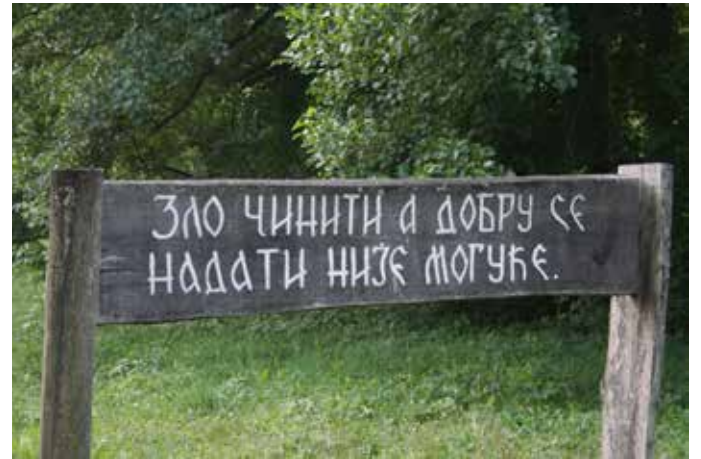 ЗЛО ЧИНИТИ А ДОБРУ СЕ
НАДАТИ НИЈЕ МОГУЋЕ.